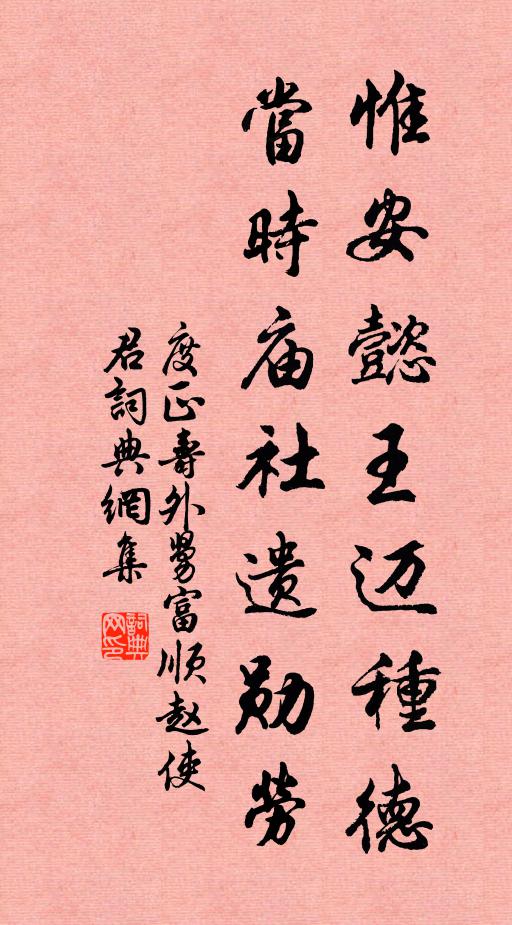 惟安懿王迈種德
當時庙社遗勋勞
度正壽外舅富順赵使
君詞典網集
詞典网印